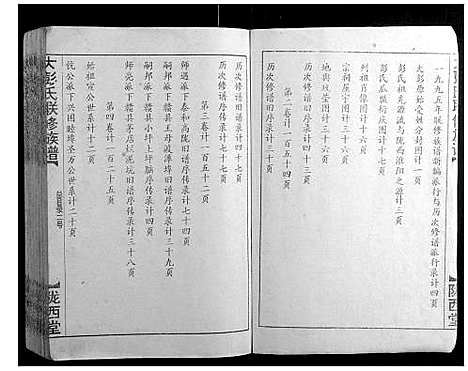 一九九五年联修族谱新编派行与历次修谱派行录计四页
大彭原始姓分封图计一页
彭氏祖先源流与陇西淮阳之源计三页
彭氏瓜瓞衍庆图计十七页
列祖肖像图计三十六页
宗祠屋宇图计十六页
地舆坟茔图计四页
第二卷一百五十二页
历次修谱序录计四十七页
历次修谱序录计四十七页
第三卷一百五十二页
师遇派下泰和高陇旧谱序传录计四十七页
嗣邦派下赣县王母渡潭埠旧谱序传录计四页
嗣邦派下赣县小坪上坪脑序传录计三十九页
师亮派下赣县茅店坛泥坑旧谱序传录计三十八页
第四卷一百二十五页
始祖宣公世系计十二页
抗公派下兴国睦埠茶万公世系计二十页
大彭氏联修族谱
陇西堂
陇西堂